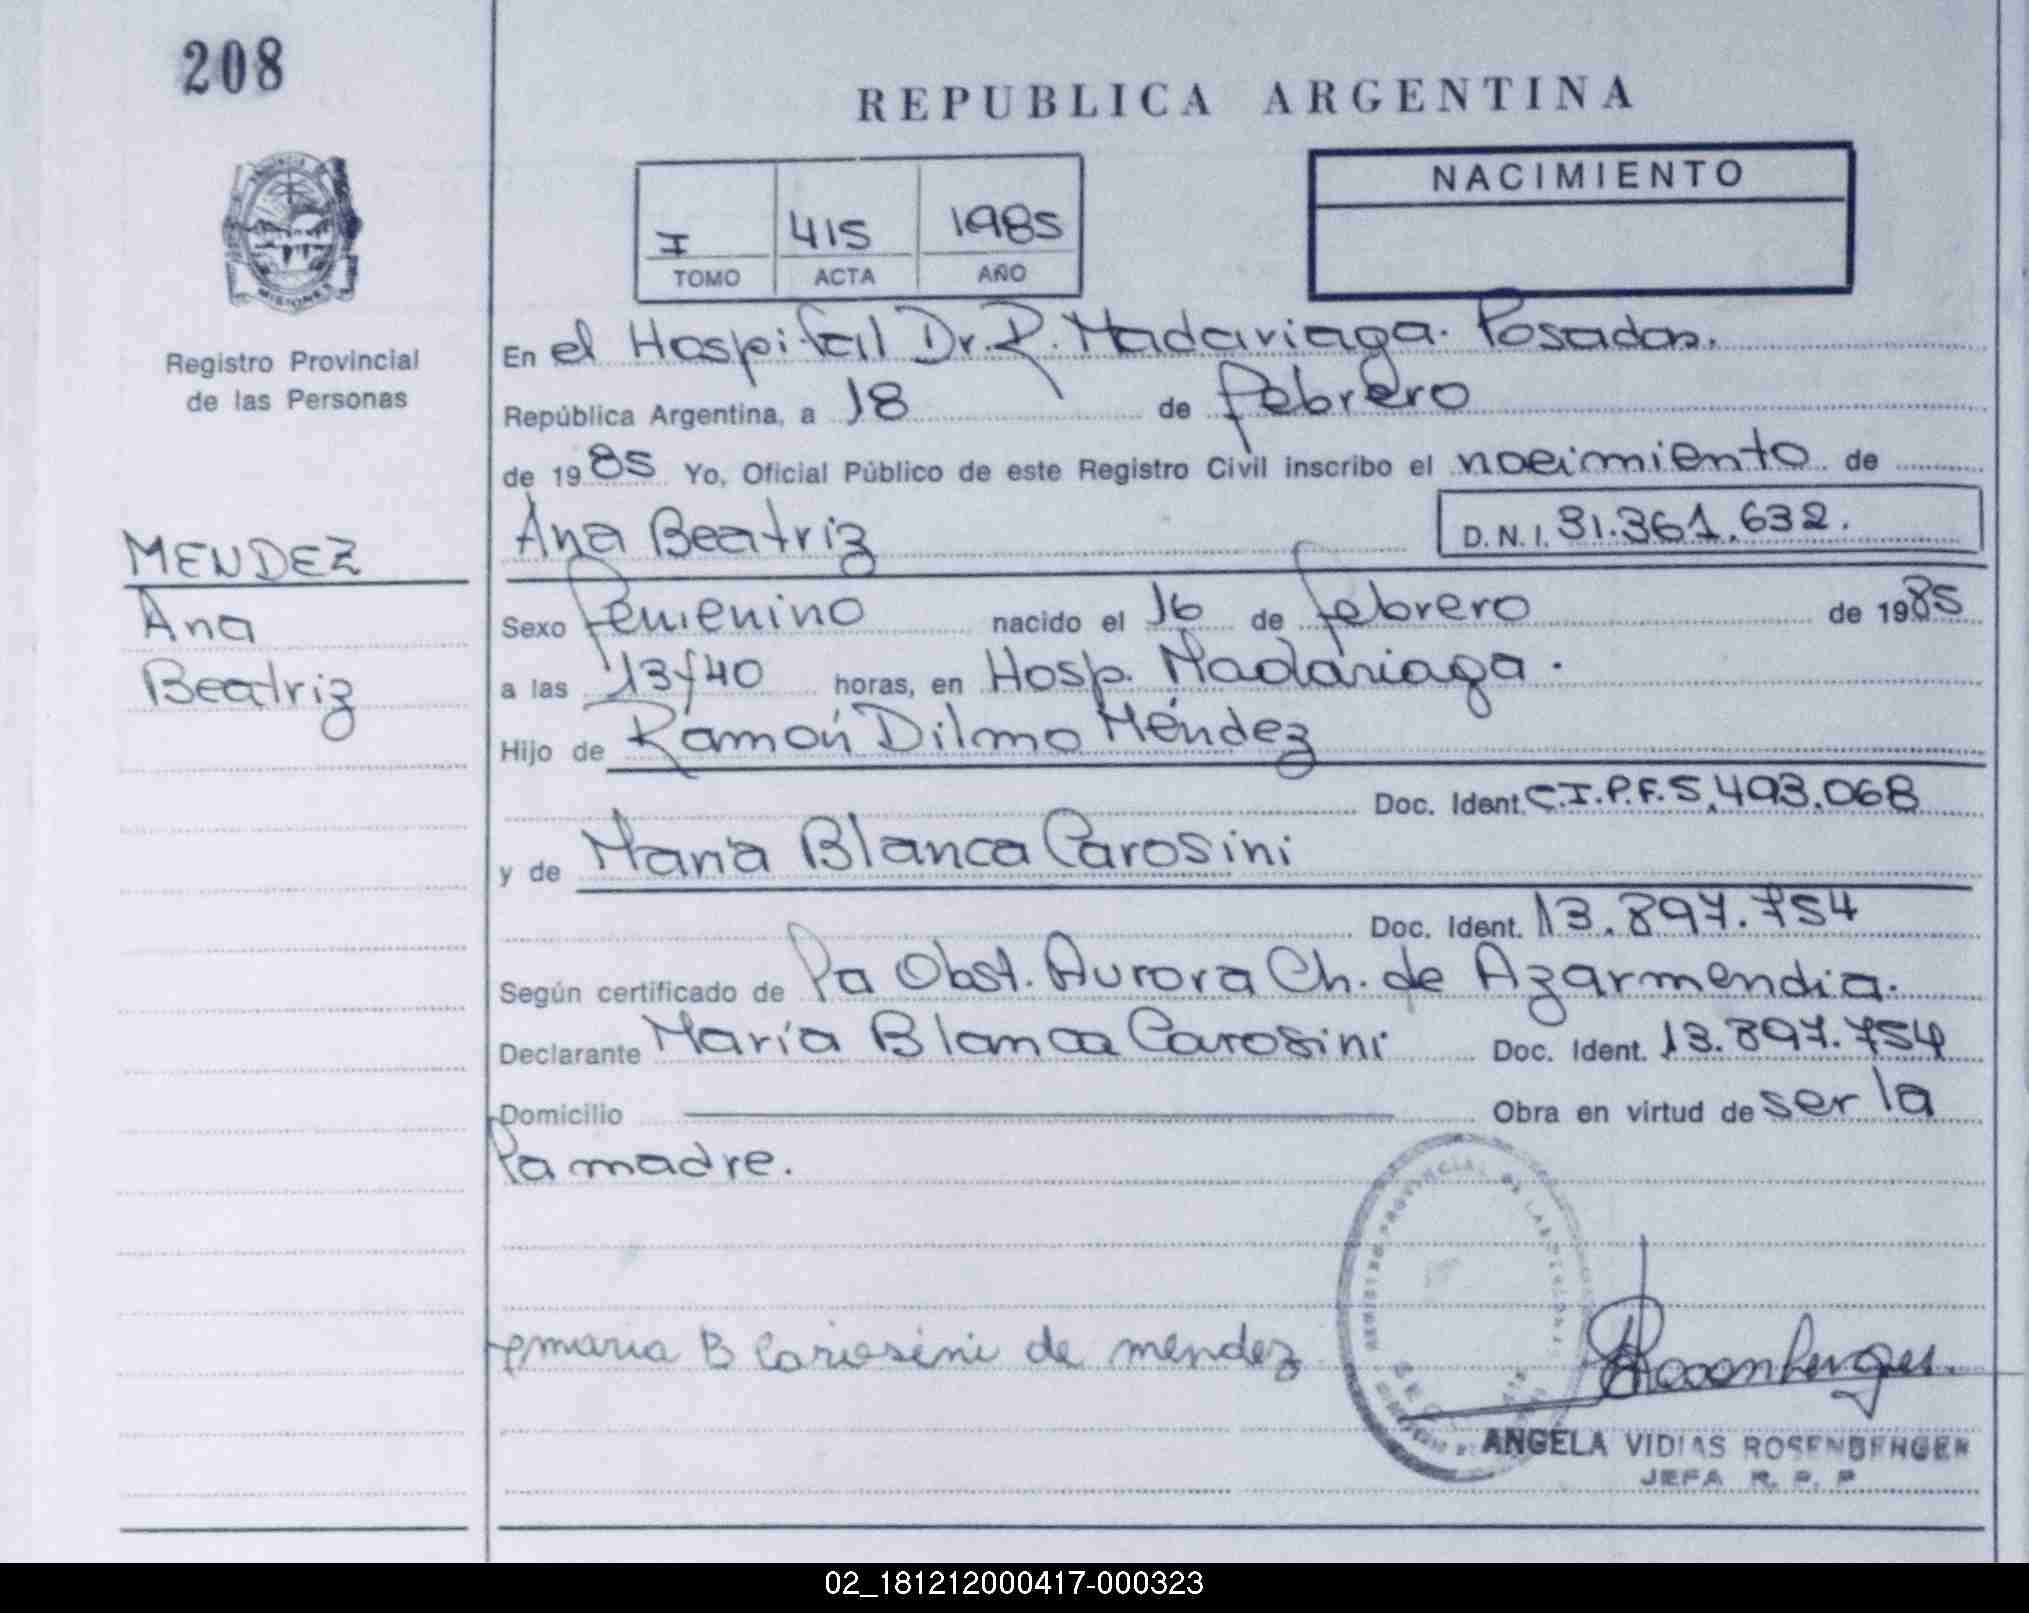 208
REPUBLICA ARGENTINA
NACIMIENTO
I 415 1985
TOMO ACTA AÑO
MISIONES
Registro Provincial
de las Personas
En el Hospital Dr. R. Madariaga. Posadas.
República Argentina, a 18 de febrero
de 1985 Yo, Oficial Público de este Registro Civil inscribo el nacimiento de
Ana Beatriz D.N.I. 31.361.632.
MENDEZ
Ana
Beatriz
Sexo femenino nacido el 16 de febrero de 1985
a las 13y40 horas, en Hosp. Madariaga.
Hijo de Ramón Dilmo Méndez
Doc. Ident. C.I.P.F. 5.493.068
y de María Blanca Carosini
Doc. Ident. 13.897.754
Según certificado de la Obst. Aurora Ch. de Azarmendia.
Declarante María Blanca Carosini Doc. Ident. 13.897.754
Domicilio Obra en virtud de ser la
la madre.
maria B Cariosini de mendez
REGISTRO PROVINCIAL DE LAS PERSONAS
Rosenberger
ANGELA VIDIAS ROSENBERGER
JEFA R. P. P
02_181212000417-000323